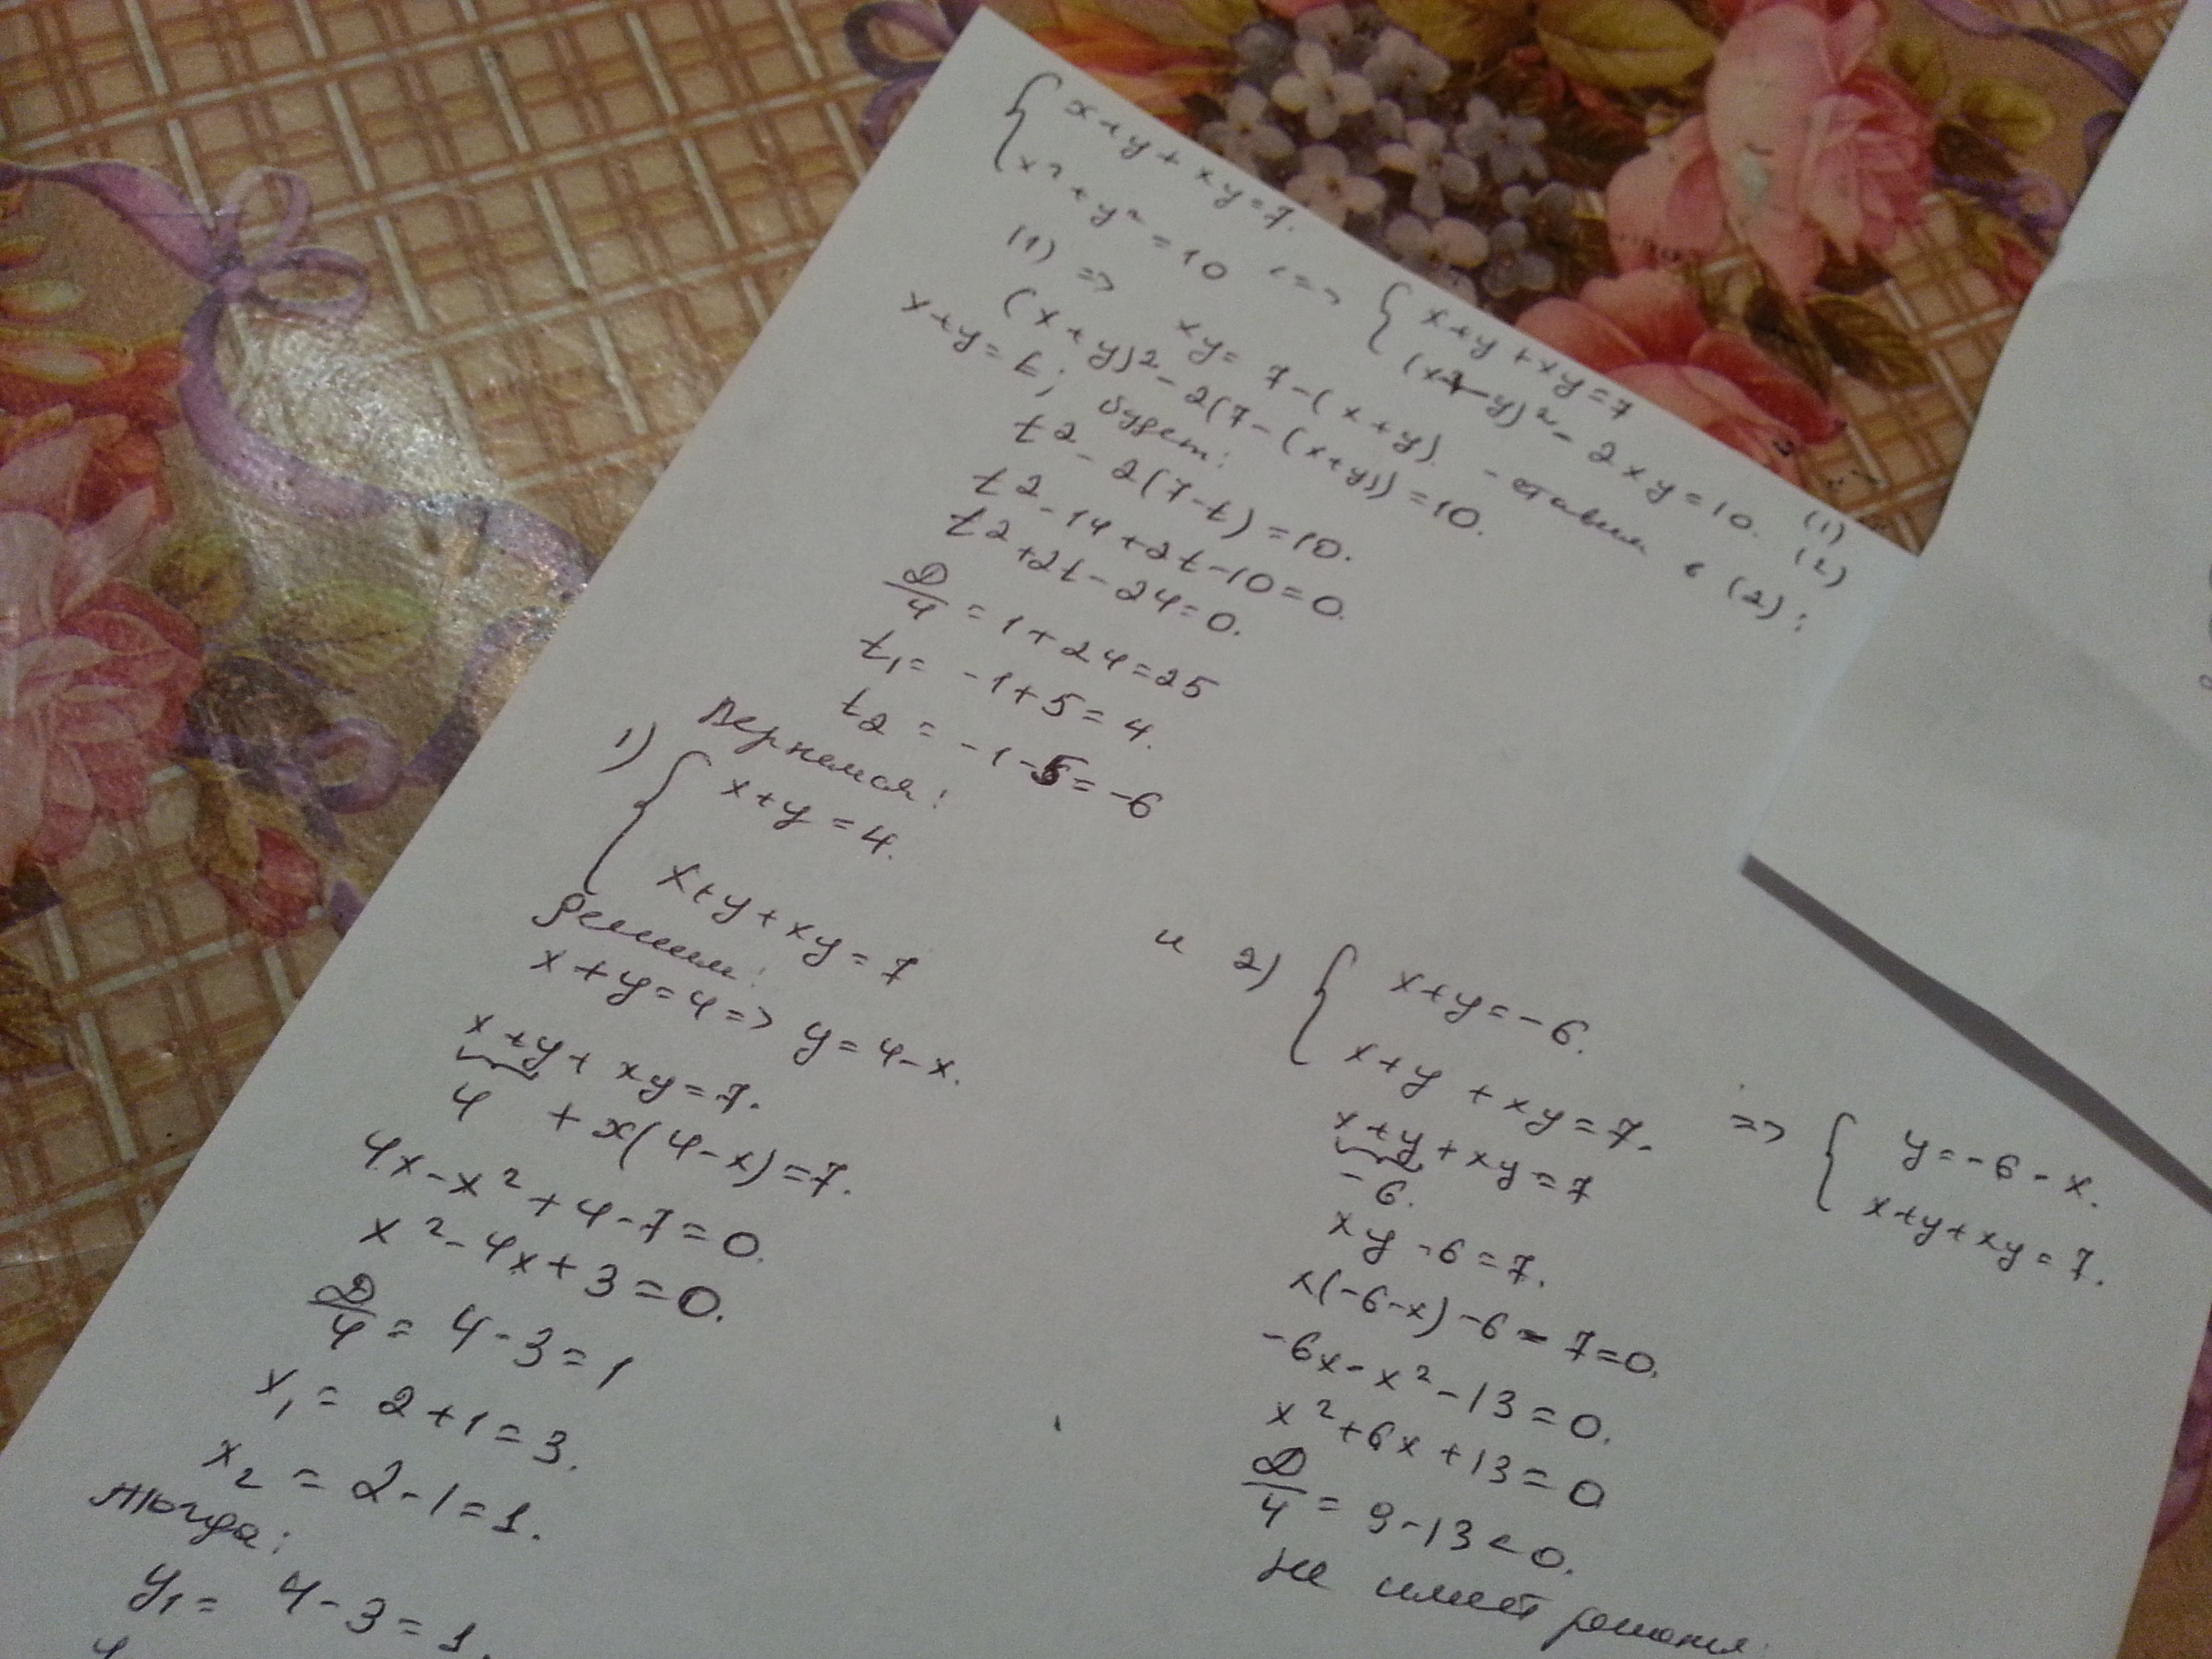 { x+y+xy=7.
x²+y²=10 <=> { x+y+xy=7 (1)
(x+y)²-2xy=10. (2)
(1) => xy=7-(x+y). - ставим в (2):
(x+y)2-2(7-(x+y))=10.
x+y=t; будет:
t2-2(7-t)=10.
t2-14+2t-10=0.
t2+2t-24=0.
D/4=1+24=25
t₁=-1+5=4.
t2=-1-5=-6
Вернемся:
1) { x+y=4.
x+y+xy=7
решим:
x+y=4=>y=4-x.
x+y+xy=7.
4+x(4-x)=7.
4x-x²+4-7=0.
x²-4x+3=0.
D/4=4-3=1
x₁=2+1=3.
x₂=2-1=1.
Тогда:
y₁=4-3=1.
и 2) { x+y=-6.
x+y+xy=7. => { y=-6-x.
x+y+xy=7.
x+y+xy=7
-6.
xy-6=7.
x(-6-x)-6-7=0.
-6x-x²-13=0.
x²+6x+13=0
D/4=9-13<0.
не имеет решения.